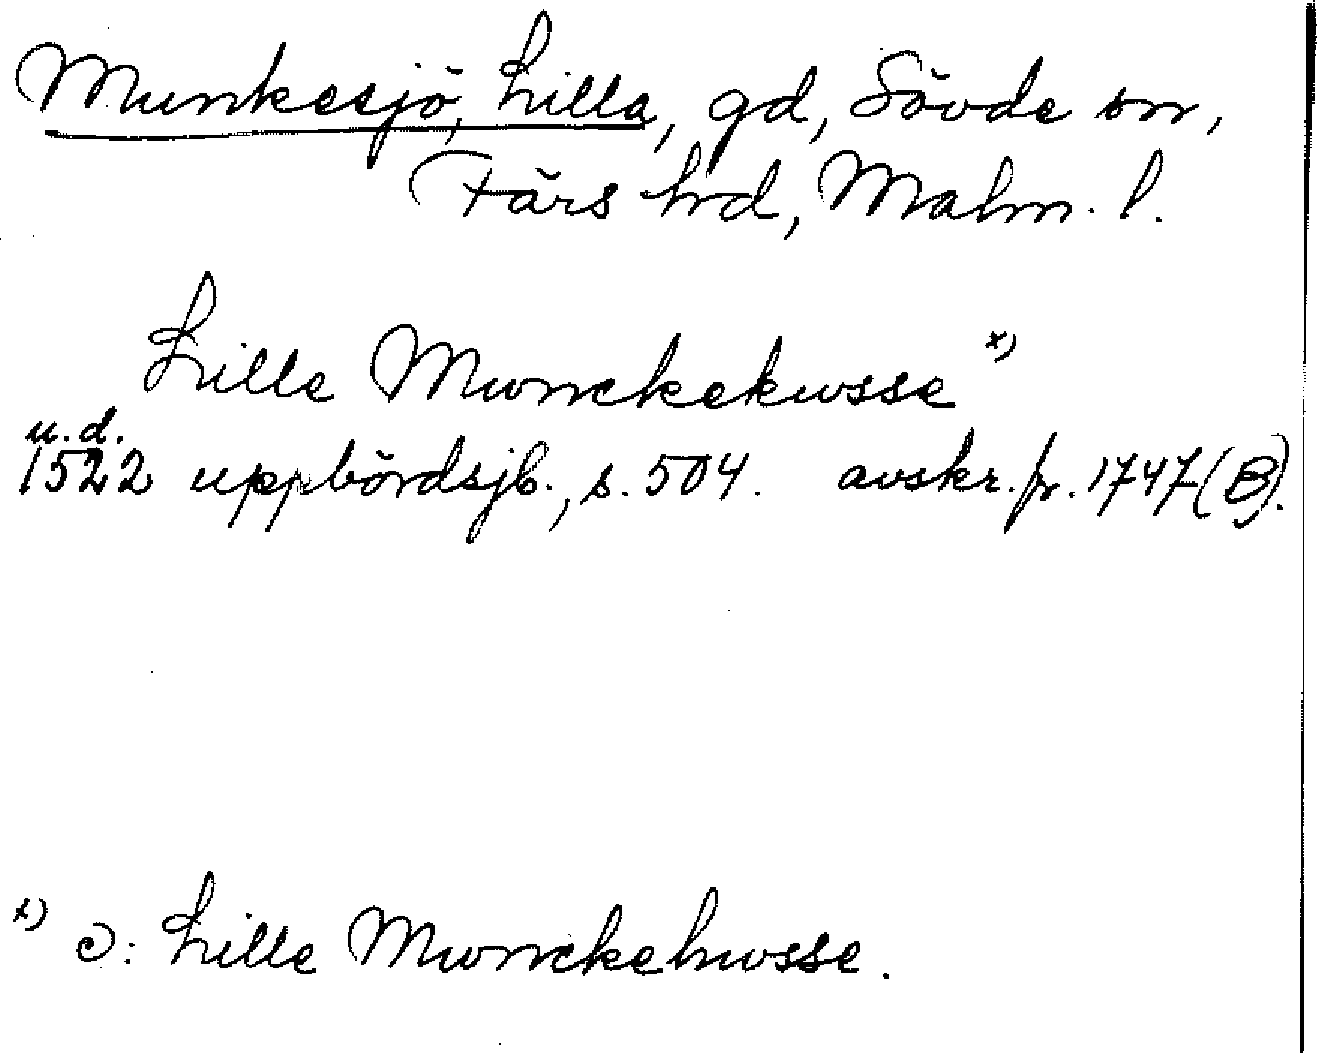 Munkesjö, Lilla, gd, Sövde sn,
Färs hd, Malm. l.
Lille Munckekusse x)
u.d.
1522 uppbördsjb., s. 504. avskr. fr. 1747 (B).
x) ɔ: Lille Munckehusse.